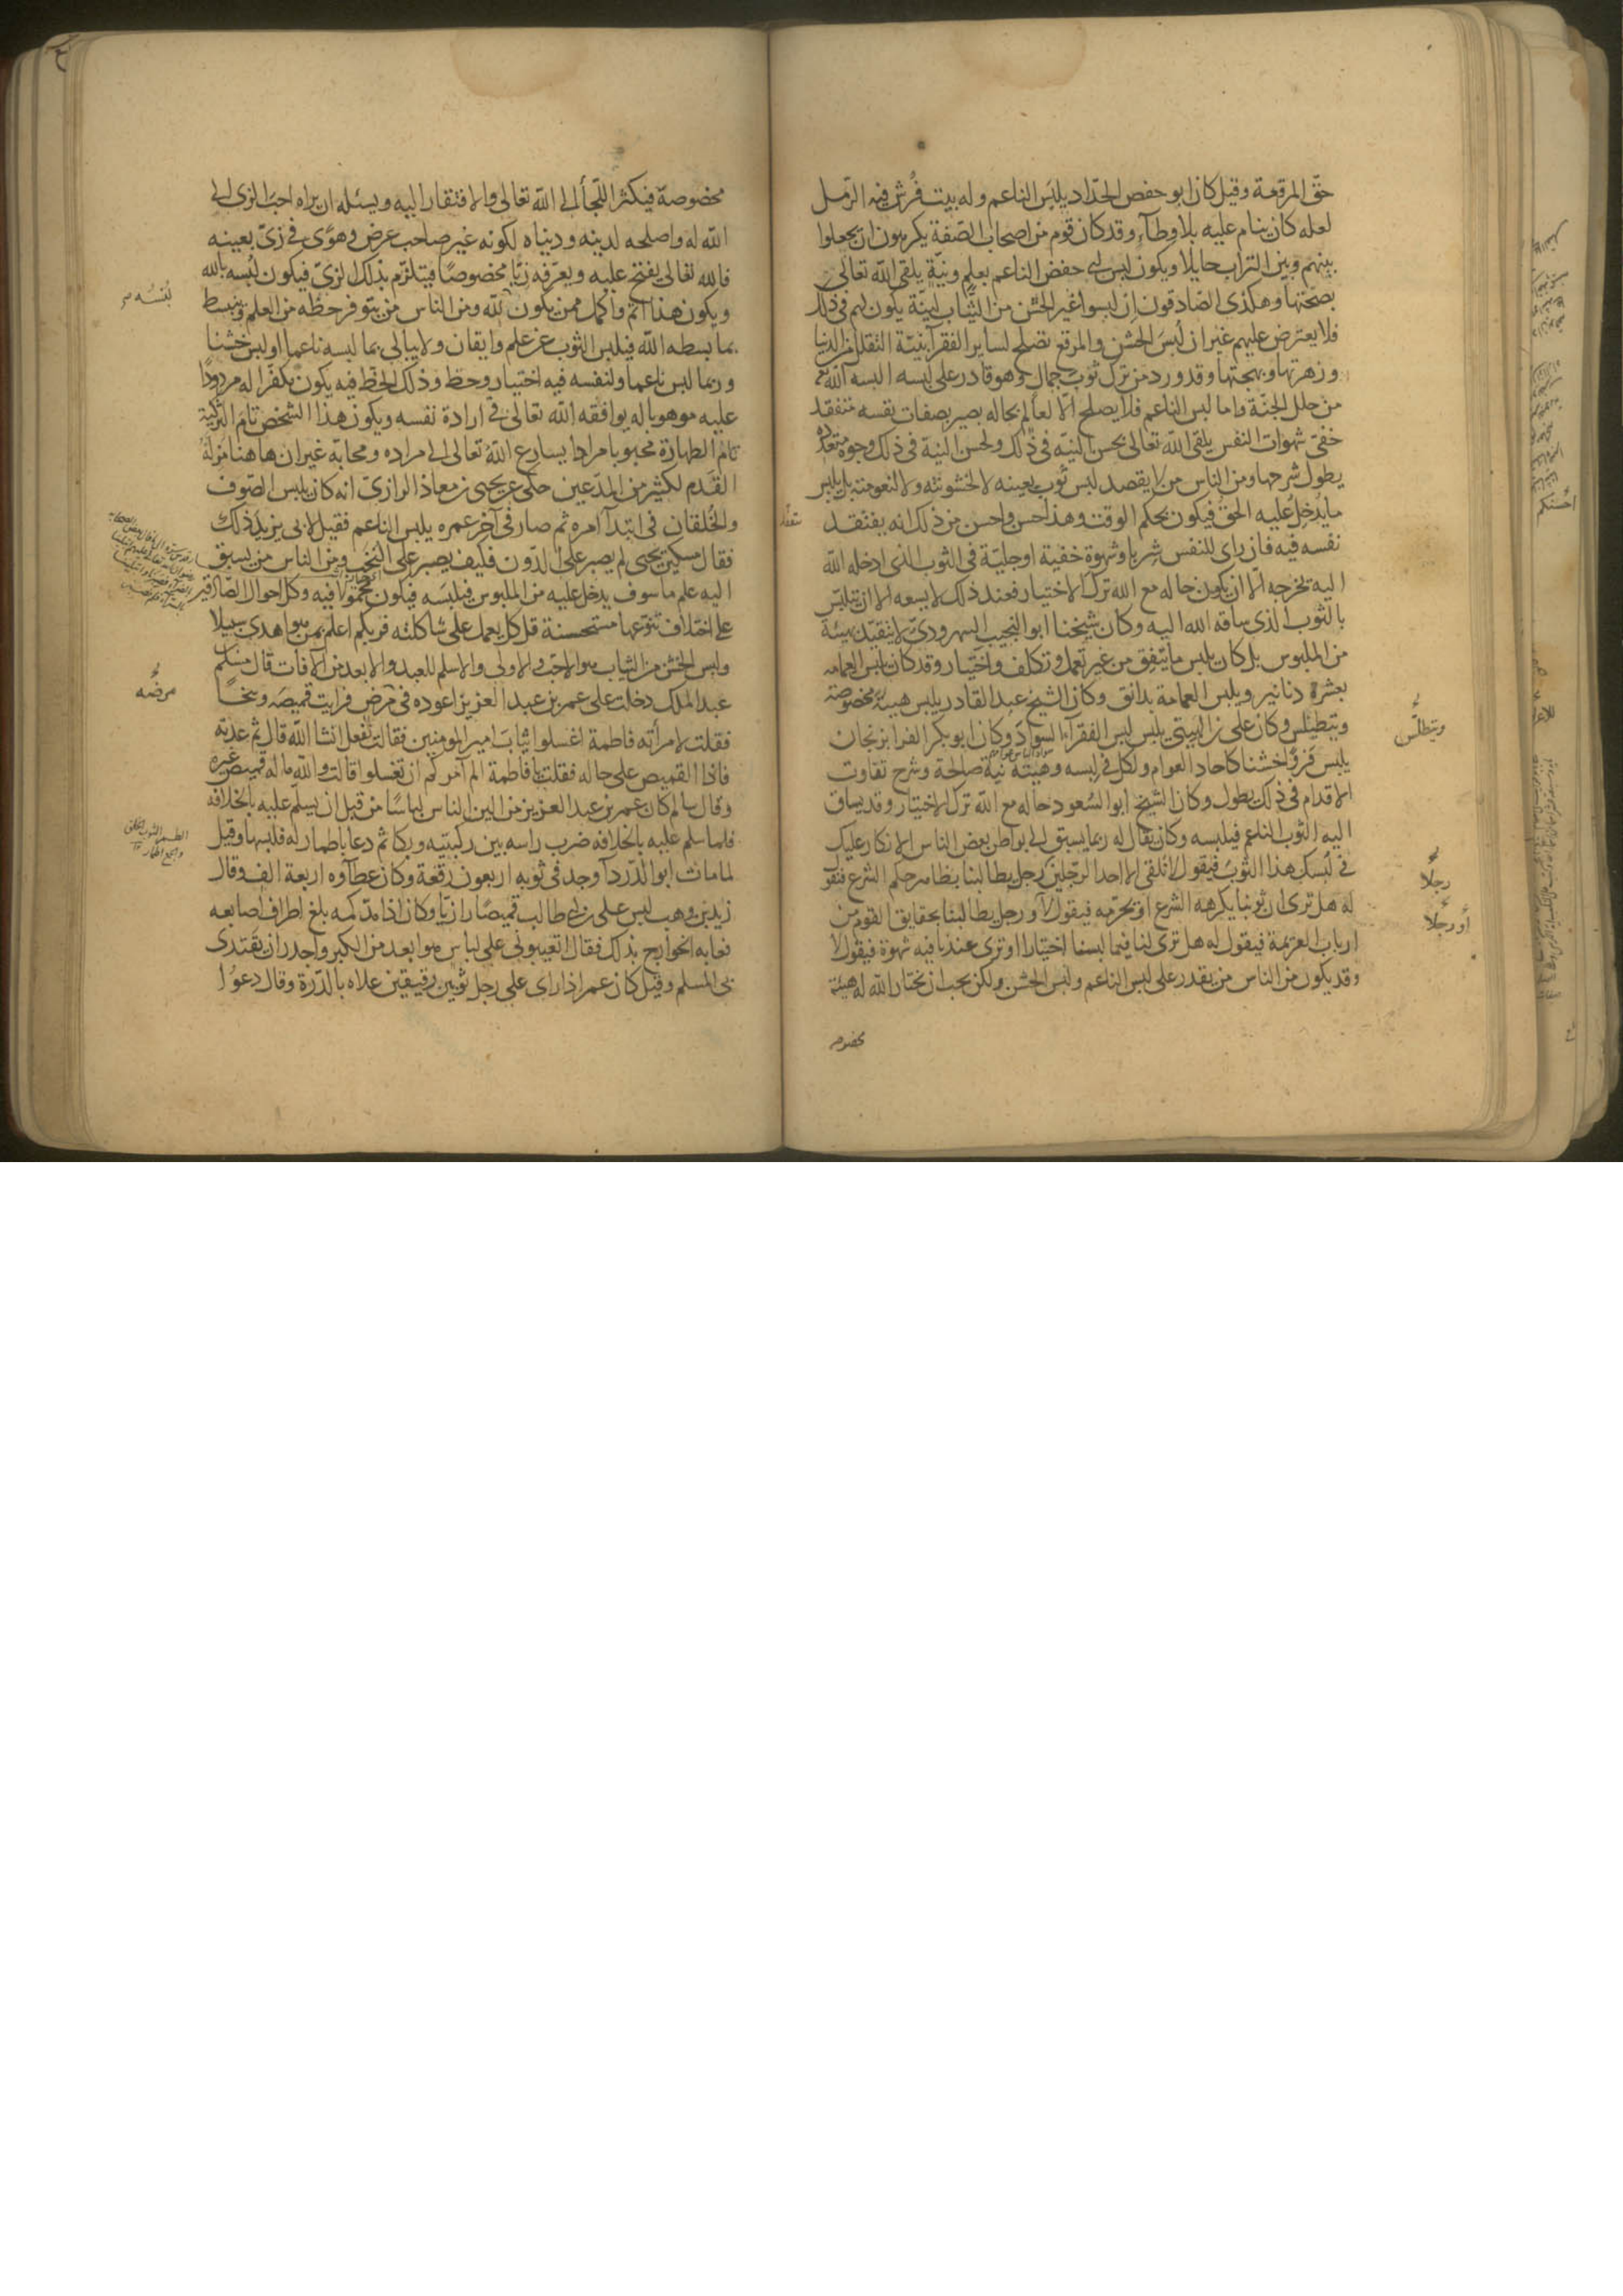 حقّ المرقعة وقيل كان ابو حفص الحدّاد يلبس الناعم وله بيت فُرش فيه الرّمل
لعله كان ينام عليه بلا وطآء وقد كان قوم من اصحاب الصّفة يكرهون ان يجعلوا
بينهم وبين التراب حايلا ويكون لبس ابى حفص الناعم بعلم ونيّة يلقى الله تعالى
بصحتها وهكذى الصّادقون ان لبسوا غير الخشن من الثّياب لنيّة يكون لهم فى ذلك
فلا يعترض عليهم غير ان لبسَ الخشن والمرقع تصلح لساير الفقرآ بنيّة التقلل من الدنيا
وزهرتها وبهجتها وقد ورد من ترك ثوب جمالٍ وهو قادر على لبسه البسه الله تع
من حلل الجنّة واما لبس الناعم فلا يصلح الّا لعالم بحاله بصير بصفات نفسه متفقد
خفىّ شهوات النفس يلقى الله تعالى بحسن النيّة فى ذلك ولحسن النيّة فى ذلك وجوه متعدّدة
يطول شرحها ومن الناس من لا يقصد لبس ثوب بعينه لا لخشونته ولا لنعومته بل يلبس
ما يُدخِل عليه الحق فيكون بحكم الوقت وهذا حسن واحسن من ذلك انه يفتقد
نفسه فيه فان راى للنفس شرها وشهوة خفية او جليّة فى الثوب الذى ادخله الله
اليه يخرجه الّا ان يكون حاله مع الله ترك الاختيار فعند ذلك لا يسعه الا ان يتلبّس
بالثوب الذى ساقه الله اليه وكان شيخنا ابو النجيب السهروردىّ لا يتقيّد بهيئة
من الملبوس بل كان يلبس ما يتّفق من غير تعمل وتكلف واختيار وقد كان يلبس العمامه
بعشرة دنانير ويلبس العمامة بدانق وكان الشيخ عبد القادر يلبس هيئة مخصوصة
ويتطيلس وكان على بن الهيتى يلبس لبس الفقرآء السواد وكان ابو بكر الفرا بزنجان
يلبس فروًا خشنا كاحاد العوام ولكل فى لبسه وهيئته نية صالحة وشرح تفاوت
الاقدام فى ذلك يطول وكان الشيخ ابو السّعود حاله مع الله ترك الاختيار وقد يساق
اليه الثوب الناعم فيلبسه وكان يقال له ربما يسبق الى بواطن بعض الناس الانكار عليك
فى لُبسك هذا الثوبَ فيقول لا نلقى الا احد الرّجلين رجل يطالبنا بظاهر حكم الشرع فنقول
له هل ترى ان ثوبنا يكرهه الشرع او يحرّمه فيقول لا ورجل يطالبنا بحقايق القوم من
ارباب العزيمة فيقول له هل ترى لنا فيما لبسنا اختيارا او ترى عندنا فيه شهوة فيقول لا
وقد يكون من الناس من يقدر على لبس الناعم ولبس الخشن ولكن يحب ان يختار الله له هيئة
مخصوصه
ويتطلّس
رجلًا
أو رجلًا
مخصوصة فيكثر اللّجأ الى الله تعالى والافتقار اليه ويسئله ان يراه احبّ الزى الى
الله له واصلحه لدينه ودنياه لكونه غير صاحب غرض وهوًى فى زىّ بعينه
فالله تعالى يفتح عليه ويعرّفه زيًّا مخصوصًا فيتلزّم بذلك الزىّ فيكون لُبسه بالله
ويكون هذا اتمّ واكمل ممن يكون لله ومن الناس من يتوفر حظّه من العلم وينبسط
بما بسطه الله فيلبس الثوب عن علم وايقان ولا يبالى بما لبسه ناعما او لبس خشنا
وربما لبس ناعما ولنفسه فيه اختيار وحظ وذلك الحظ فيه يكون مكفّرا له مردودًا
عليه موهوبا له يوافقه الله تعالى فى ارادة نفسه ويكون هذا الشخص تام التّزكية
تامّ الطهارة محبوبا مرادا يسارع الله تعالى الى مراده ومحابّه غير ان هاهنا مزلّة
القَدم لكثير من المدّعين حكى عن يحيى بن معاذ الرازىّ انه كان يلبس الصّوف
والخُلقان فى ابتدآ امره ثم صار فى آخر عمره يلبس الناعم فقيل لابى يزيد ذلك
فقال مسكين يحيى لم يصبر على الدّون فكيف يصبر على التحَف ومن الناس من يسبق
اليه علم ما سوف يدخل عليه من الملبوس فيلبسه فيكون محمودًا فيه وكل احوال الصّادقين
على اختلاف تنوّعها مستحسنة قل كل يعمل على شاكلته فربكم اعلم بمن هو اهدى سبيلا
ولبس الخشن من الثياب هو الاحبّ والاولى والاسلم للعبد والابعد من الآفات قال مسلم
عبد الملك دخلت على عمر بن عبد العزيز اعوده فى مرض فرايت قميصَه وسخًا
فقلت لامرأته فاطمة اغسلوا ثيابَ امير المومنين فقالت نفعل انشا الله قال ثم عدته
فاذا القميص على حاله فقلت يا فاطمة الم آمركم ان تغسلوا قالت والله ما له قميص غيره
وقال سالم كان عمر بن عبد العزيز من الين الناس لباسًا من قبل ان يسلّم عليه بالخلافة
فلما سلم عليه بالخلافه ضرب راسه بين ركبتيه وبكا ثم دعا باطمار له فلبسها وقيل
لما مات ابو الدّردآ وجد فى ثوبه اربعون رقعة وكان عطآؤه اربعة الف وقال
زيد بن وهب لبس على بن ابى طالب قميصًا رازيّا وكان اذا مدّ كمه بلغ اطراف اصابعه
فعابه الخوارج بذلك فقال اتعيبونى على لباس هو ابعد من الكبر واجدر ان يقتدى
بى المسلم وقيل كان عمر اذا راى على رجل ثوبين رقيقين علاه بالدّرّة وقال دعوا
مرضه
الطمر الثوب الخلق
والجمع اطمار